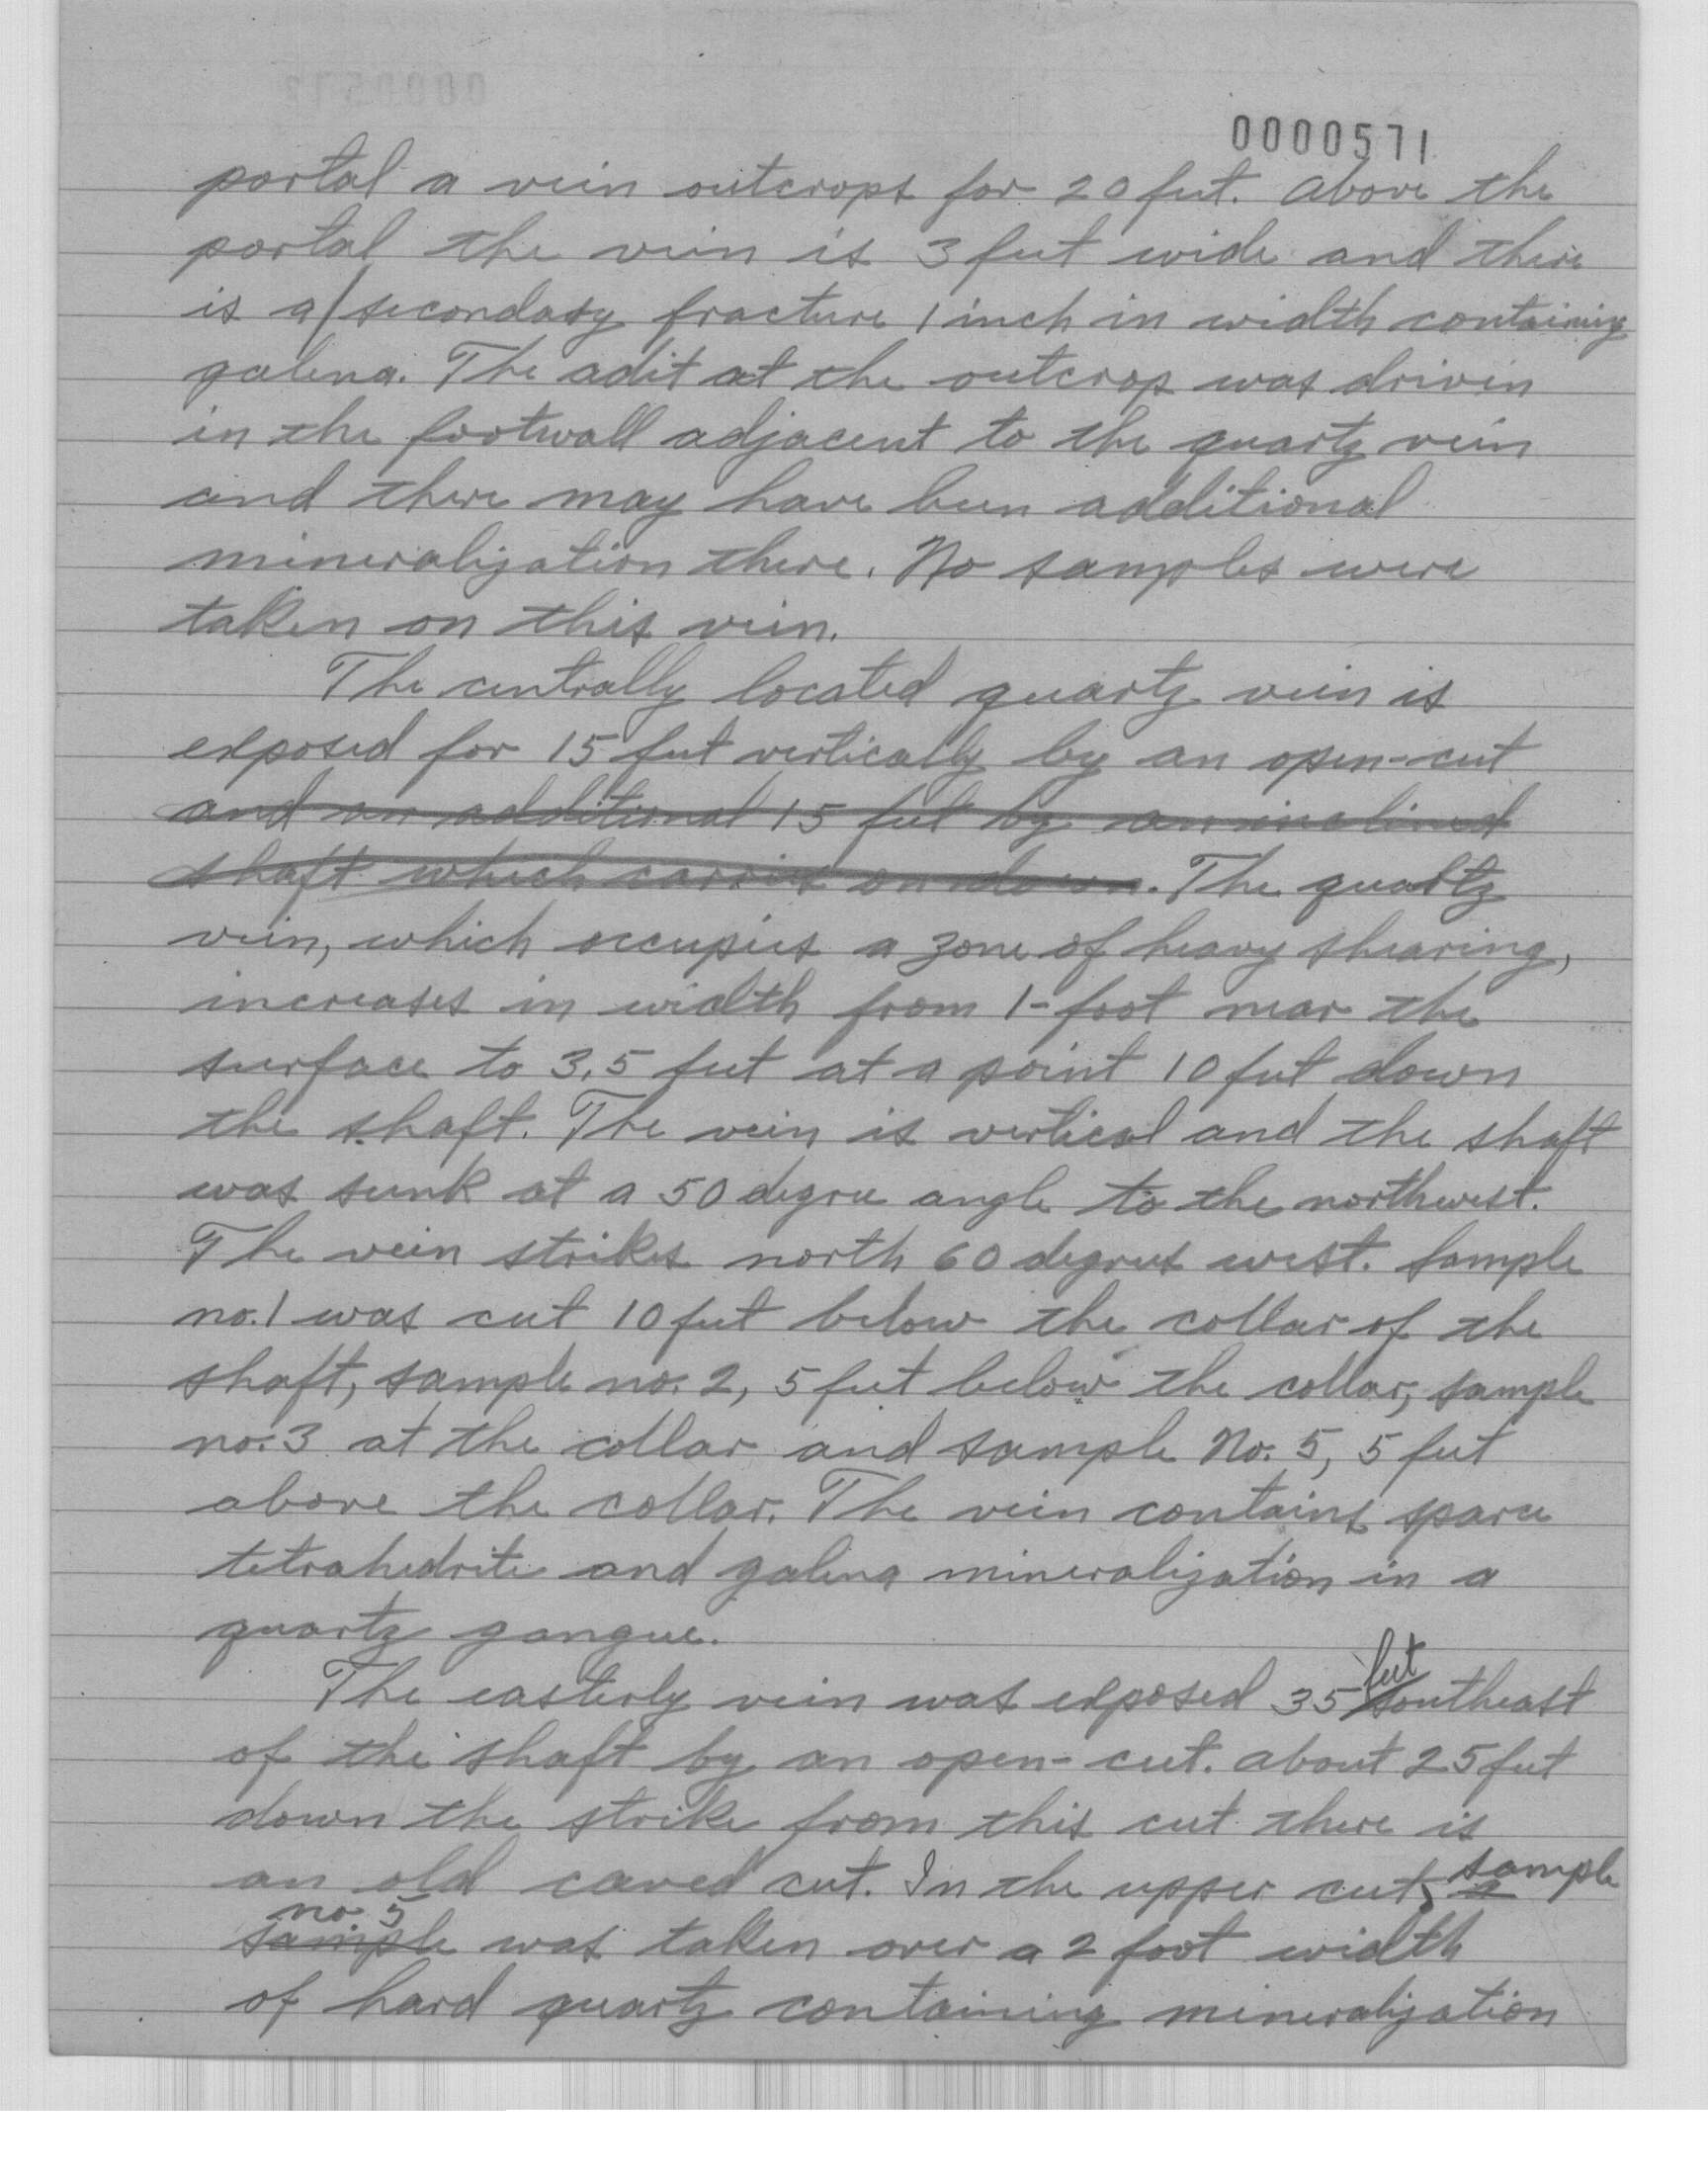 0000571
portal a vein outcrops for 20 feet. Above the
portal the vein is 3 feet wide and there
is a secondary fracture 1 inch in width containing
galena. The adit at the outcrop was driven
in the footwall adjacent to the quartz vein
and there may have been additional
mineralization there. No samples were
taken on this vein.
The centrally located quartz vein is
exposed for 15 feet vertically by an open-cut
and an additional 15 feet by an inclined
shaft which carries on down. The quartz
vein, which occupies a zone of heavy shearing,
increases in width from 1-foot near the
surface to 3.5 feet at a point 10 feet down
the shaft. The vein is vertical and the shaft
was sunk at a 50 degree angle to the northwest.
The vein strikes north 60 degrees west. Sample
no. 1 was cut 10 feet below the collar of the
shaft, sample no. 2, 5 feet below the collar, sample
no. 3 at the collar and sample No. 5, 5 feet
above the collar. The vein contains sparce
tetrahedrite and galena mineralization in a
quartz gangue.
The easterly vein was exposed 35 feet southeast
of the shaft by an open-cut. About 25 feet
down the strike from this cut there is
an old caved cut. In the upper cut, a sample
no. 5
sample was taken over a 2 foot width
of hard quartz containing mineralization